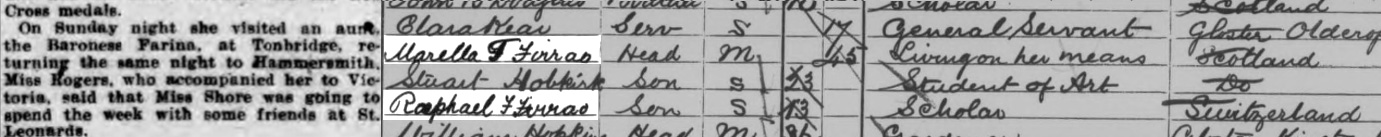 Cross medals.
On Sunday night she visited an aunt,
the Baroness Farina, at Tonbridge, re-
turning the same night to Hammersmith.
Miss Rogers, who accompanied her to Vic-
toria, said that Miss Shore was going to
spend the week with some friends at St.
Leonards.
Scholar Scotland
Clara Kear Serv S 17 General Servant Gloster
Marella F Firrao Head M 45 Living on her means Scotland
Stuart Hobkirk Son S 23 Student of Art Do
Raphael F Firrao Son S 13 Scholar Switzerland
William Head M